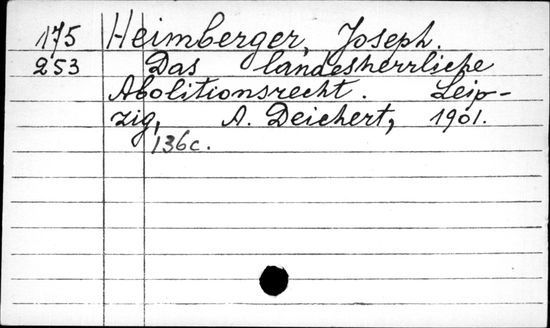 175 Heimberger, Joseph.
253 Das landesherrliche
Abolitionsrecht. Leip-
zig, A. Deichert, 1901.
136c.